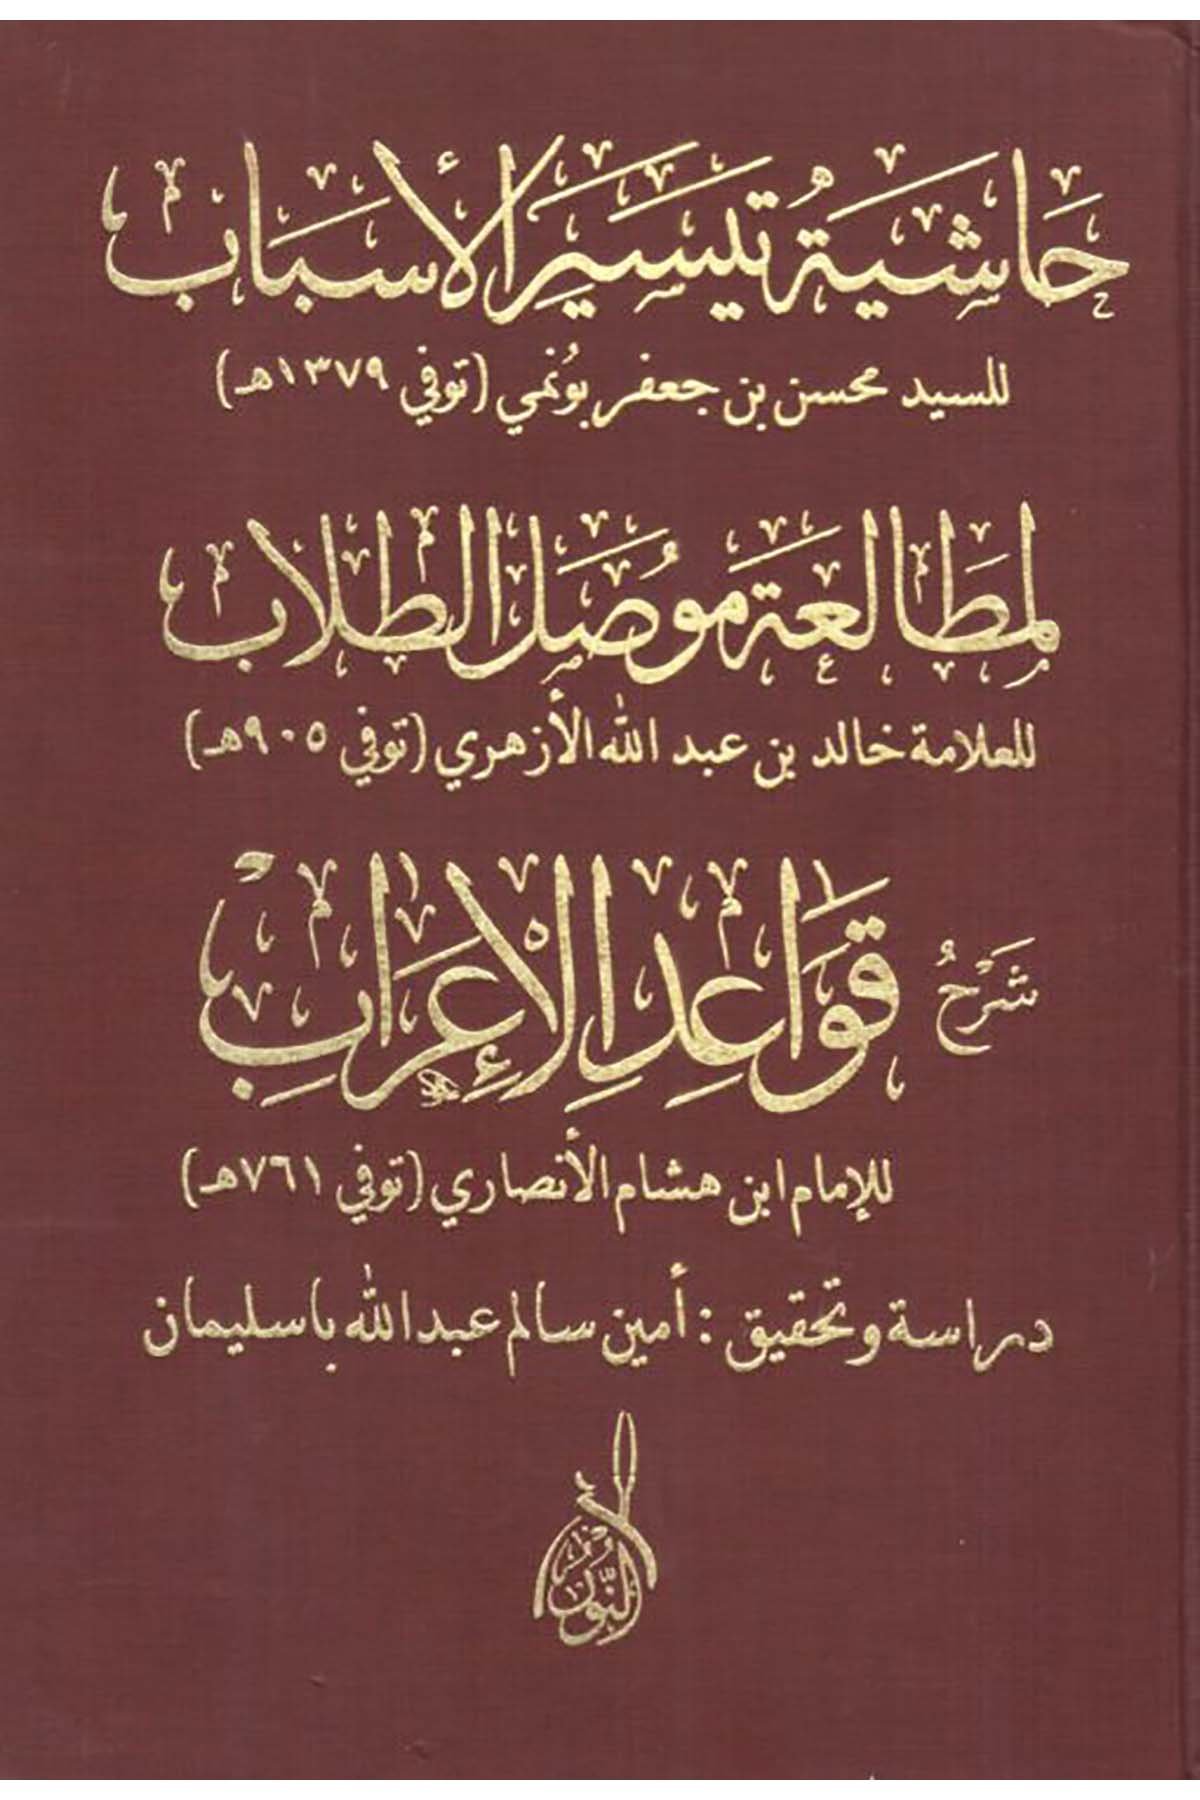 حَاشيَةُ تيسيرِ الأسبَاب
للسيد محسن بن جعفر بونُمي (توفي ١٣٧٩هـ)
لمطَالعَة موُصَل الطلاب
للعلامة خالد بن عبد الله الأزهري (توفي ٩٠٥هـ)
شَرْحُ قَوَاعِدِ الإِعرَابِ
للإمام ابن هشام الأنصاري (توفي ٧٦١هـ)
دراسة وتحقيق : أمين سالم عبدالله باسليمان
النُّور